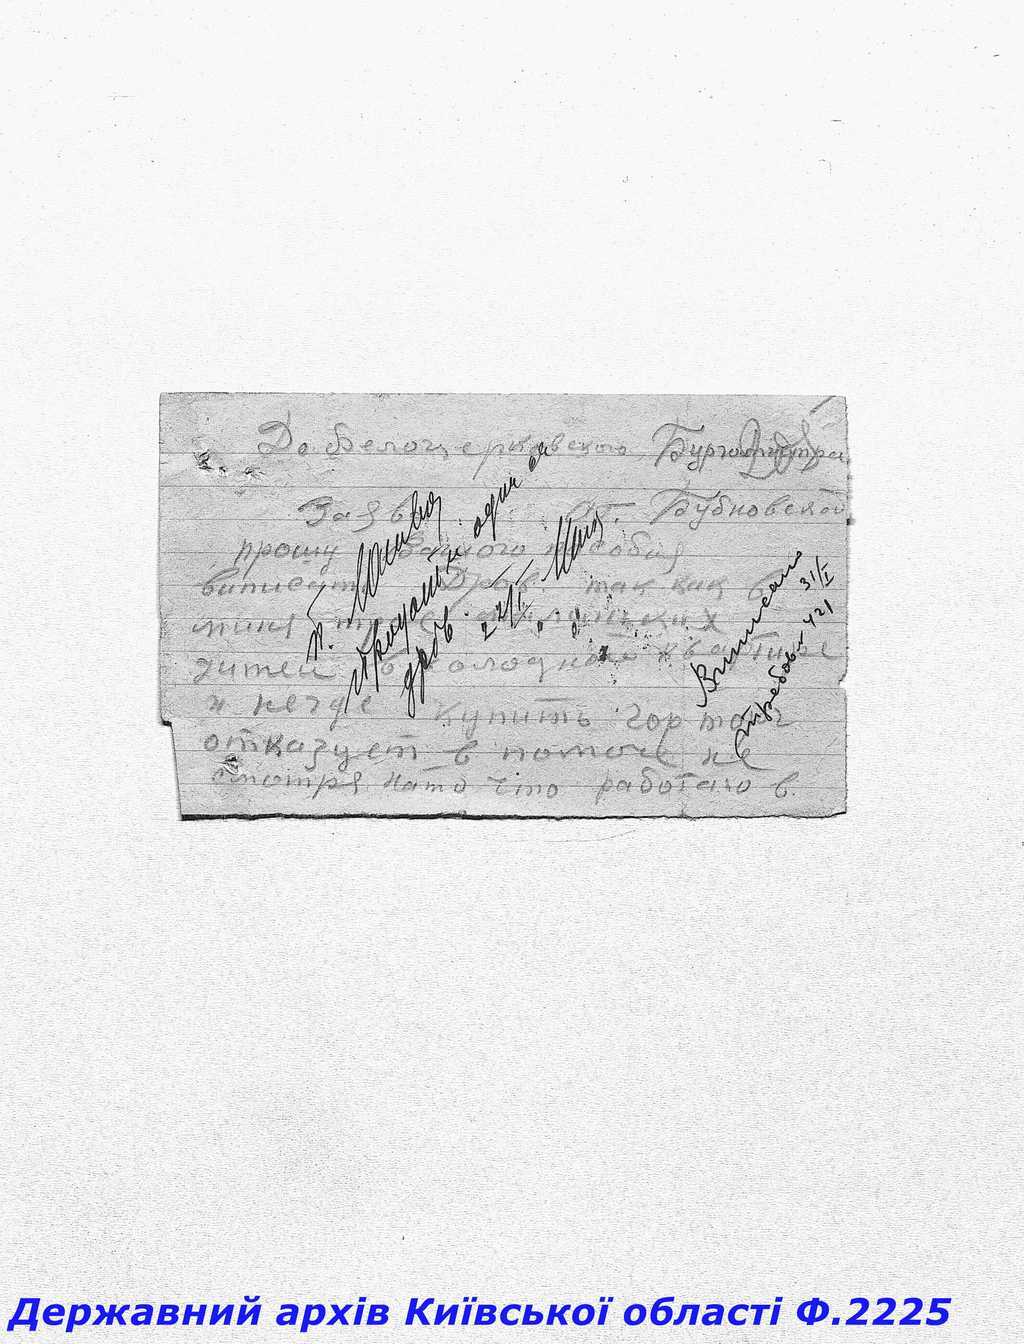 До Белоцерковского Бургомистра
Заяв Бубновской
прошу Вашого пособия
виписат Дров. так как в
миня трое маленьких
дитей в холодной квартире
и негде купить Гортоп
отказует в помоче не
смотря на то что работаю в
п.
Продать один
дров. 27/I
Виписано 31/I
требов. 421
Державний архів Київської області Ф.2225